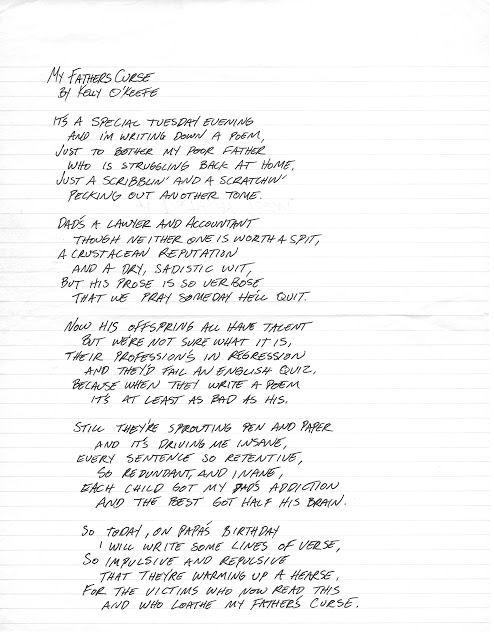 MY FATHERS CURSE
BY KELLY O'KEEFE
IT'S A SPECIAL TUESDAY EVENING
AND I'M WRITING DOWN A POEM,
JUST TO BOTHER MY POOR FATHER
WHO IS STRUGGLING BACK AT HOME,
JUST A SCRIBBLIN' AND A SCRATCHIN'
PECKING OUT ANOTHER TOME.
DAD'S A LAWYER AND ACCOUNTANT
THOUGH NEITHER ONE IS WORTH A SPIT,
A CRUSTACEAN REPUTATION
AND A DRY, SADISTIC WIT,
BUT HIS PROSE IS SO VERBOSE
THAT WE PRAY SOMEDAY HE'LL QUIT.
NOW HIS OFFSPRING ALL HAVE TALENT
BUT WE'RE NOT SURE WHAT IT IS,
THEIR PROFESSION'S IN REGRESSION
AND THEY'D FAIL AN ENGLISH QUIZ,
BECAUSE WHEN THEY WRITE A POEM
IT'S AT LEAST AS BAD AS HIS.
STILL THEY'RE SPROUTING PEN AND PAPER
AND IT'S DRIVING ME INSANE,
EVERY SENTENCE SO RETENTIVE,
SO REDUNDANT, AND INANE,
EACH CHILD GOT MY DAD'S ADDICTION
AND THE BEST GOT HALF HIS BRAIN.
SO TODAY, ON PAPA'S BIRTHDAY
I WILL WRITE SOME LINES OF VERSE,
SO IMPULSIVE AND REPULSIVE
THAT THEY'RE WARMING UP A HEARSE,
FOR THE VICTIMS WHO NOW READ THIS
AND WHO LOATHE MY FATHER'S CURSE.